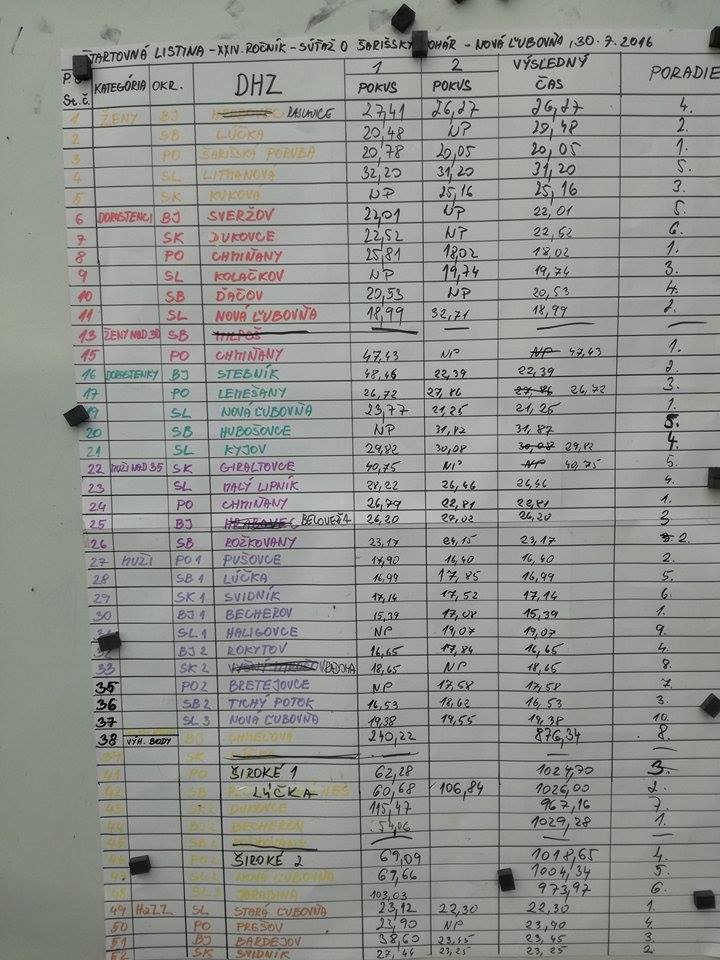 ŠTARTOVNÁ LISTINA - XXIV. ROČNÍK - SÚŤAŽ O ŠARIŠSKÝ POHÁR - NOVÁ ĽUBOVŇA, 30.7.2016
P.Č St.č. KATEGÓRIA OKR. DHZ 1 POKUS 2 POKUS VÝSLEDNÝ ČAS PORADIE
1 ŽENY BJ RASLAVICE 27,41 26,27 26,27 4.
2 SB LÚČKA 20,48 NP 20,48 2.
3 PO ŠARIŠSKÁ PORUBA 20,78 20,05 20,05 1.
4 SL LITMANOVÁ 32,20 31,20 31,20 5.
5 SK KUKOVÁ NP 25,16 25,16 3.
6 DORASTENCI BJ SVERŽOV 22,01 NP 22,01 5.
7 SK DUKOVCE 22,52 NP 22,52 6.
8 PO CHMIŇANY 25,81 18,02 18,02 1.
9 SL KOLAČKOV NP 19,74 19,74 3.
10 SB ĎAČOV 20,53 NP 20,53 4.
11 SL NOVÁ ĽUBOVŇA 18,99 32,71 18,99 2.
13 ŽENY NAD 30 SB
15 PO CHMIŇANY 47,43 NP NP 47,43 1.
16 DORASTENKY BJ STEBNÍK 48,46 22,39 22,39 2.
17 PO LEMEŠANY 26,72 27,86 27,86 26,72 3.
19 SL NOVÁ ĽUBOVŇA 23,77 21,25 21,25 1.
20 SB HUBOŠOVCE NP 31,87 31,87 5.
21 SL KYJOV 29,82 30,08 30,08 29,82 4.
22 MUŽI NAD 35 SK GIRALTOVCE 40,75 NP NP 40,75 5.
23 SL MALÝ LIPNÍK 28,22 26,46 26,46 4.
24 PO CHMIŇANY 26,79 22,81 22,81 1.
25 BJ BELOVEŽA 26,20 27,02 26,20 3
26 SB ROŽKOVANY 23,17 24,15 23,17 2.
27 MUŽI PO 1 PUŠOVCE 17,90 16,40 16,40 2.
28 SB 1 LÚČKA 16,99 17,85 16,99 5.
29 SK 1 SVIDNÍK 17,14 17,52 17,14 6.
30 BJ 1 BECHEROV 15,39 17,08 15,39 1.
SL 1 HALIGOVCE NP 19,07 19,07 9.
BJ 2 ROKYTOV 16,65 17,84 16,65 4.
33 SK 2 18,65 NP 18,65 8.
35 PO2 BRETEJOVCE NP 17,58 17,58 7.
36 SB 2 TICHÝ POTOK 16,53 18,62 16,53 3.
37 SL 3 NOVÁ ĽUBOVŇA 19,38 19,55 19,38 10.
38 VÝH. BODY BJ CHMEĽOVÁ 240,22 876,34 8.
39 SK
41 PO ŠIROKÉ 1 62,28 1024,70 3.
42 SB LÚČKA 60,68 106,84 1026,00 2.
43 DUKOVCE 115,47 967,16 7.
44 BJ BECHEROV 54,06 1029,28 1.
45
46 PO ŠIROKÉ 2 69,09 1018,65 4.
NOVÁ ĽUBOVŇA 67,66 1004,34 5.
48 JARABINA 103,03 973,97 6.
49 HaZZ SL STARÁ ĽUBOVŇA 23,12 22,30 22,30 1.
50 PO PREŠOV 23,90 NP 23,90 4.
51 BJ BARDEJOV 38,60 23,45 23,45 3.
52 SK SVIDNÍK 27,44 23,25 23,25 2.